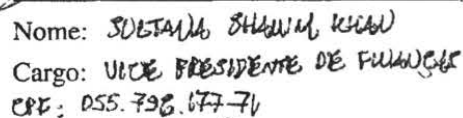 Nome: SULTANA SHAWM KHAN
Cargo: VICE PRESIDENTE DE FINANÇAS
CPF: 055.796.177-71